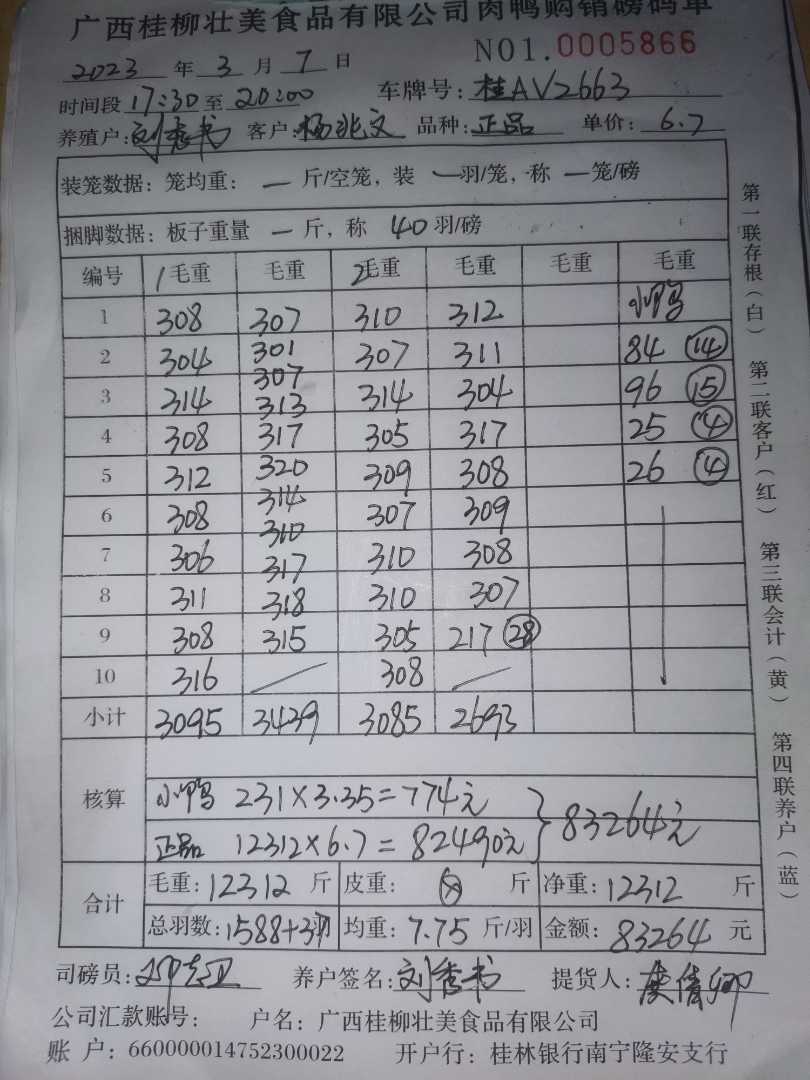 广西桂柳壮美食品有限公司肉鸭购销磅码单
NO1.0005866
2023 年 3 月 7 日
时间段 17:30 至 20:00 车牌号: 桂AV2663
养殖户: 刘秀书 客户: 杨兆文 品种: 正品 单价: 6.7
装笼数据: 笼均重: — 斤/空笼, 装 — 羽/笼, 称 — 笼/磅
捆脚数据: 板子重量 — 斤, 称 40 羽/磅
编号 1毛重 毛重 2毛重 毛重 毛重 毛重
1 308 307 310 312 小鸭
2 304 301 307 311 84 (14)
307
3 314 313 314 304 96 (15)
4 308 317 305 317 25 (4)
5 312 320 309 308 26 (4)
314
6 308 310 307 309
7 306 317 310 308
8 311 318 310 307
9 308 315 305 217 (28)
10 316 308
小计 3095 3439 3085 2693
核算 小鸭 231×3.35=774元
正品 12312×6.7=82490元 } 83264元
合计 毛重: 12312 斤 皮重: 斤 净重: 12312 斤
总羽数: 1588+37羽 均重: 7.75 斤/羽 金额: 83264 元
司磅员: 养户签名: 刘秀书 提货人:
公司汇款账号: 户名: 广西桂柳壮美食品有限公司
账 户: 660000014752300022 开户行: 桂林银行南宁隆安支行
第一联存根(白) 第二联客户(红) 第三联会计(黄) 第四联养户(蓝)